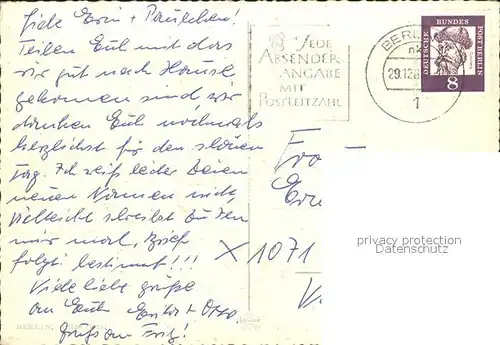 Liebe Erni + Paulchen!
Teilen Euch mit das
wir gut nach Hause
gekommen sind, wir
danken Euch nochmals
herzlichst für den schönen
Tag. Ich weiß leider Deinen
neuen Namen nicht,
vielleicht schreibst Du den
mir mal, Brief
folgt bestimmt!!!
Viele liebe Grüße
an Euch + Otto
Gruß an Fritz!
BERLIN,
JEDE
ABSENDER-
ANGABE
MIT
POSTLEITZAHL
BERL
29.12.
1
DEUTSCHE BUNDES POST BERLIN
8
Fra
X 1071
privacy protection
Datenschutz